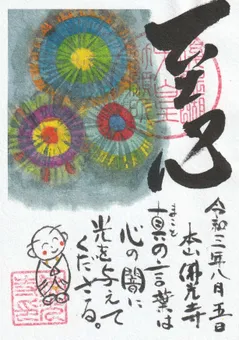 至心
令和三年八月五日
本山佛光寺
まこと
真の言葉は
心の闇に
光を与えて
くださる。